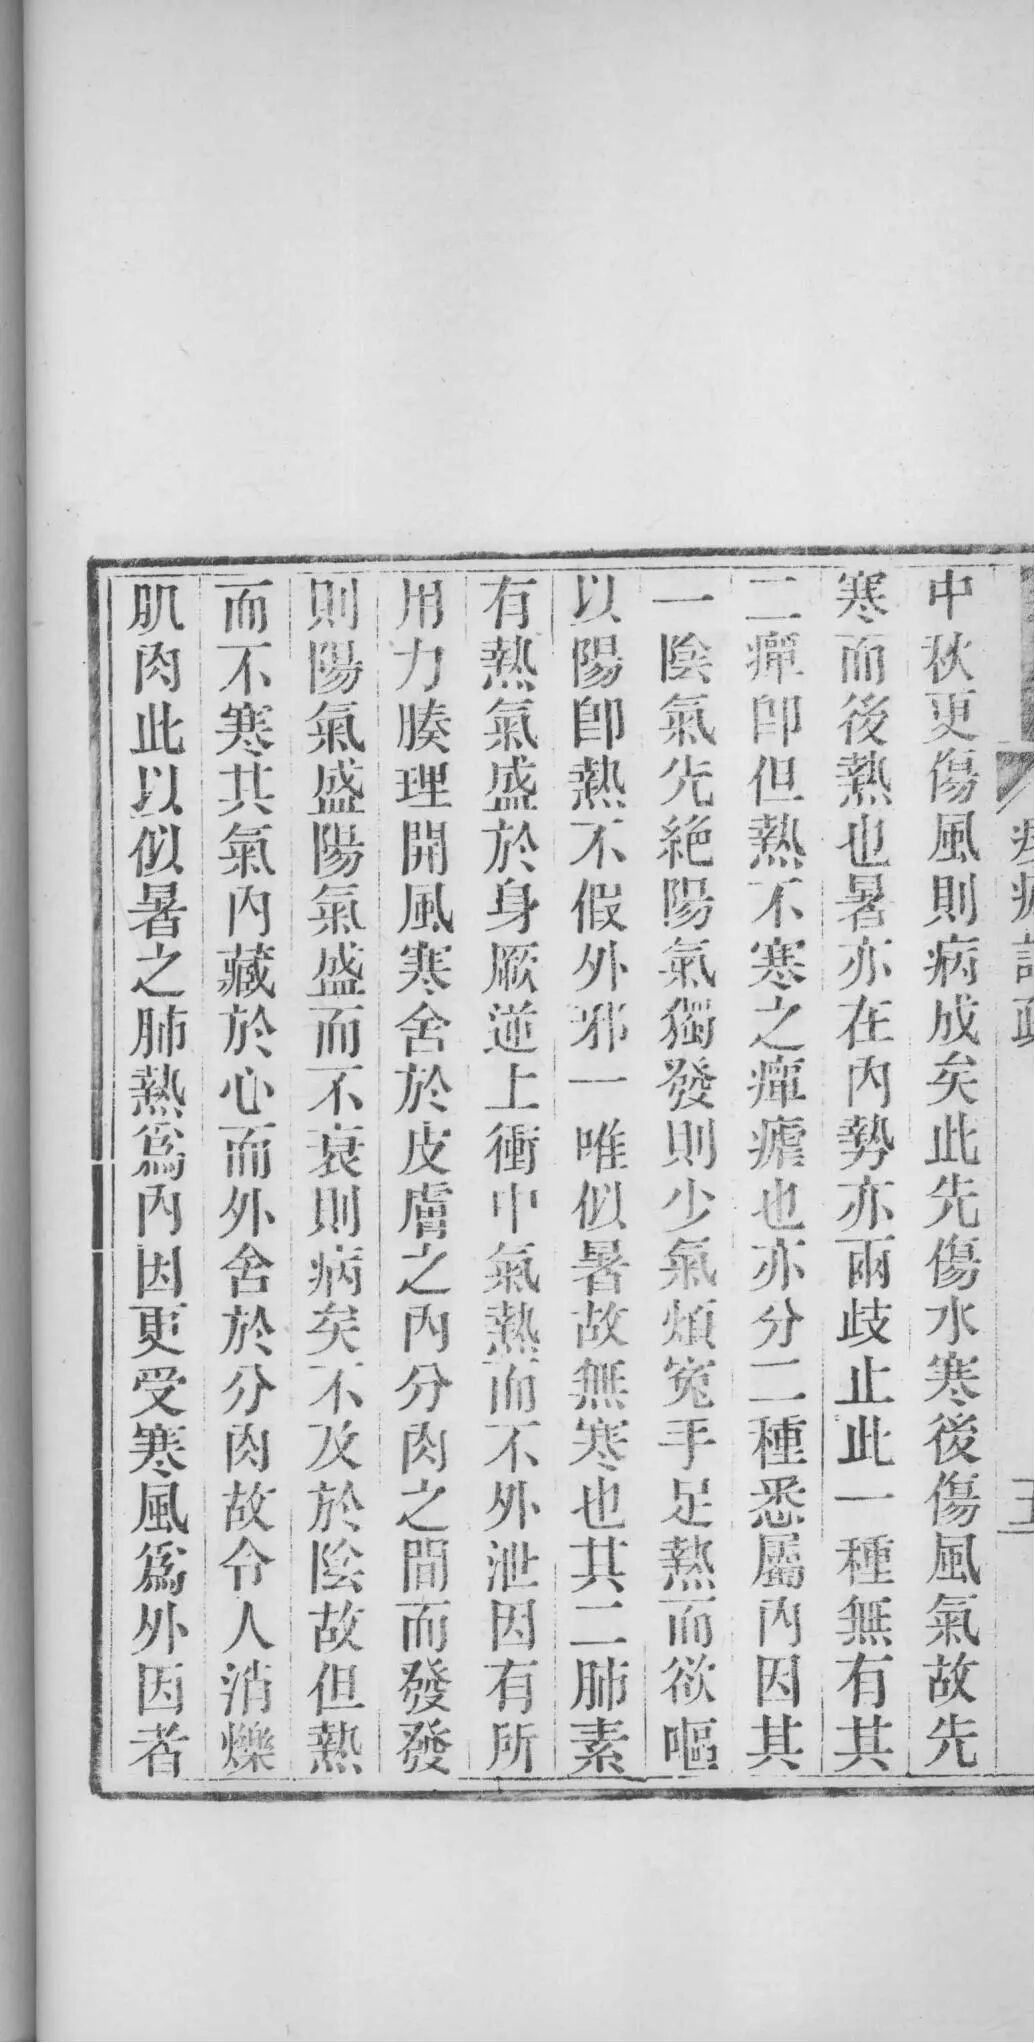 痎瘧論疏
中秋更傷風則病成矣此先傷水寒後傷風氣故先
寒而後熱也暑亦在內勢亦兩歧止此一種無有其
二癉卽但熱不寒之癉瘧也亦分二種悉屬內因其
一陰氣先絕陽氣獨發則少氣煩寃手足熱而欲嘔
以陽卽熱不假外邪一唯似暑故無寒也其二肺素
有熱氣盛於身厥逆上衝中氣熱而不外泄因有所
用力腠理開風寒舍於皮膚之內分肉之間而發發
則陽氣盛陽氣盛而不衰則病矣不及於陰故但熱
而不寒其氣內藏於心而外舍於分肉故令人消爍
肌肉此以似暑之肺熱爲內因更受寒風爲外因者